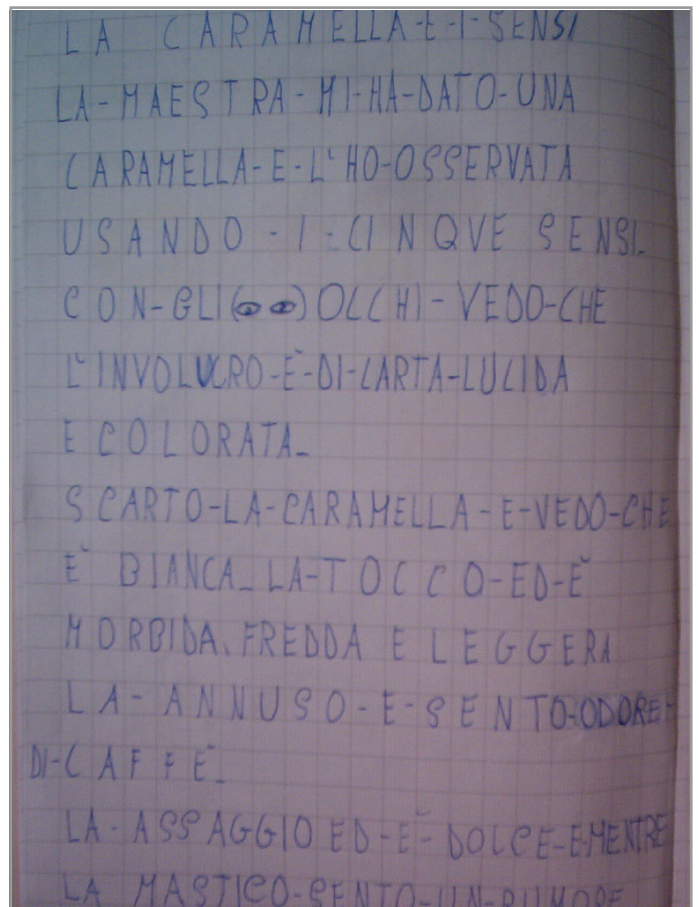 LA CARAMELLA-E-I-SENSI
LA-MAESTRA-MI-HA-DATO-UNA
CARAMELLA-E-L'HO-OSSERVATA
USANDO-I-CINQUE SENSI.
CON-GLI(👁👁)OCCHI-VEDO-CHE
L'INVOLUCRO-È-DI-CARTA-LUCIDA
E COLORATA_
SCARTO-LA-CARAMELLA-E-VEDO-CHE
È BIANCA_LA-TOCCO-ED-È
MORBIDA, FREDDA E LEGGERA
LA-ANNUSO-E-SENTO-ODORE-
DI-CAFFÈ_
LA-ASSAGGIO ED-È-DOLCE-E-MENTRE
LA MASTICO-SENTO-UN-RUMORE